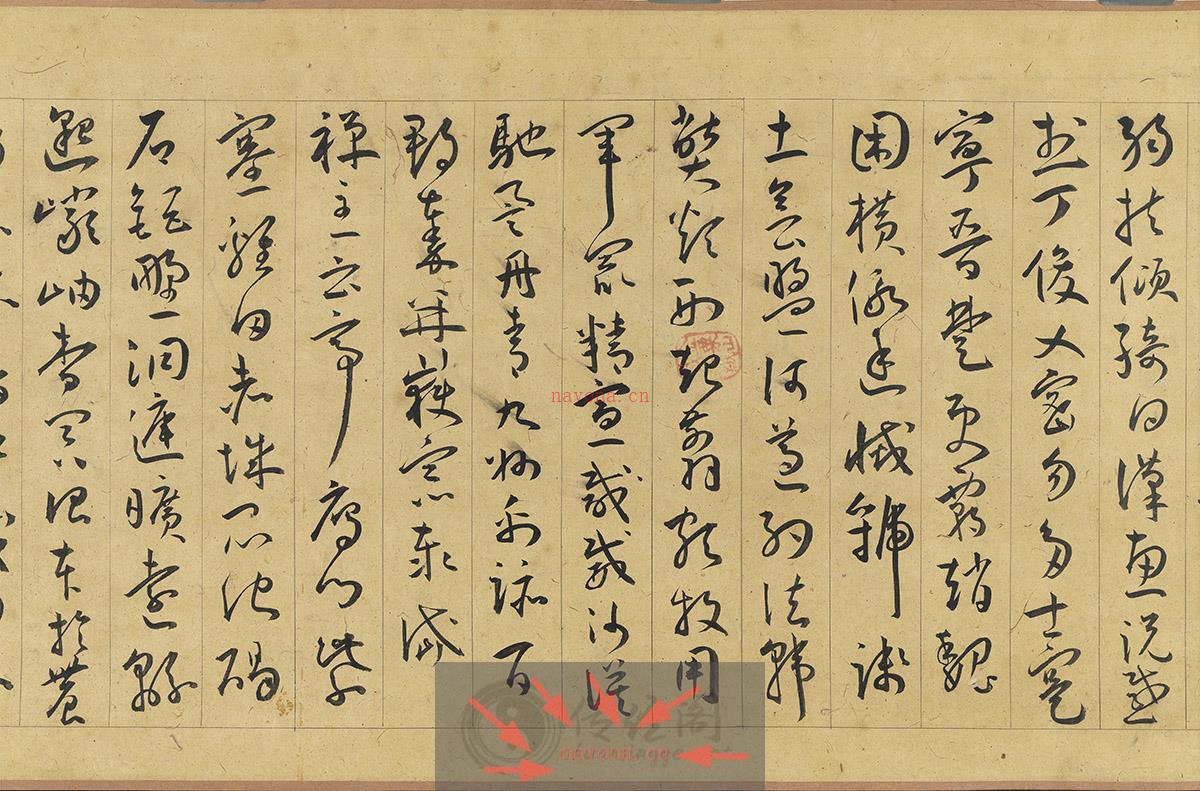 弱扶傾綺回漢惠說感
武丁俊乂密勿多士寔
寧晉楚更霸趙魏
困橫假途滅虢踐
土會盟何遵約法韓
弊煩刑起翦頗牧用
軍最精宣威威沙漠
馳譽丹青九州禹跡百
郡秦并嶽宗泰岱
禪主云亭雁門紫
塞雞田赤城昆池碣
石鉅野洞庭曠遠緜
邈巖岫杳冥治本於農
nayona.cn